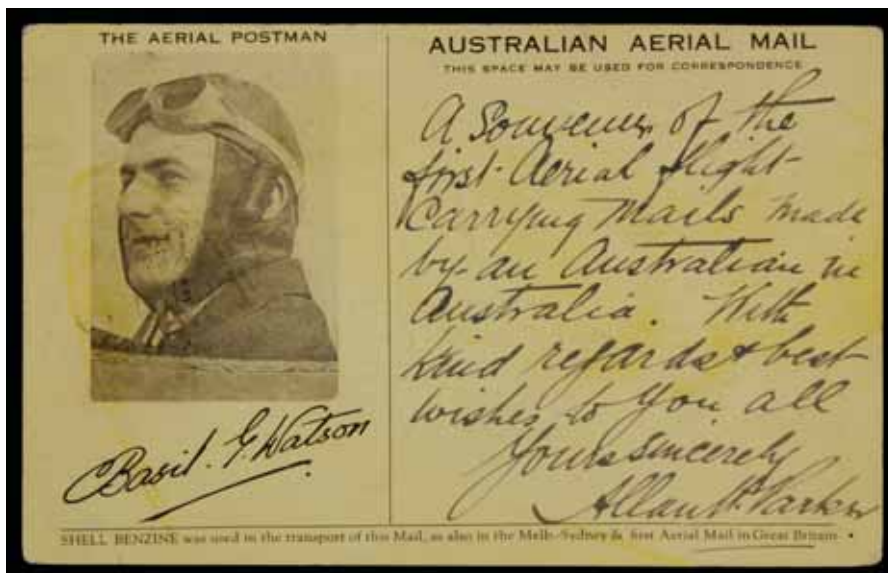 THE AERIAL POSTMAN
Basil. G. Watson
AUSTRALIAN AERIAL MAIL
THIS SPACE MAY BE USED FOR CORRESPONDENCE
A Souvenir of the
first Aerial flight
Carrying Mails made
by an Australian in
Australia. With
kind regards & best
wishes to you all
Yours sincerely
Allan Parker
SHELL BENZINE was used in the transport of this Mail, as also in the Melb.-Sydney & first Aerial Mail in Great Britain